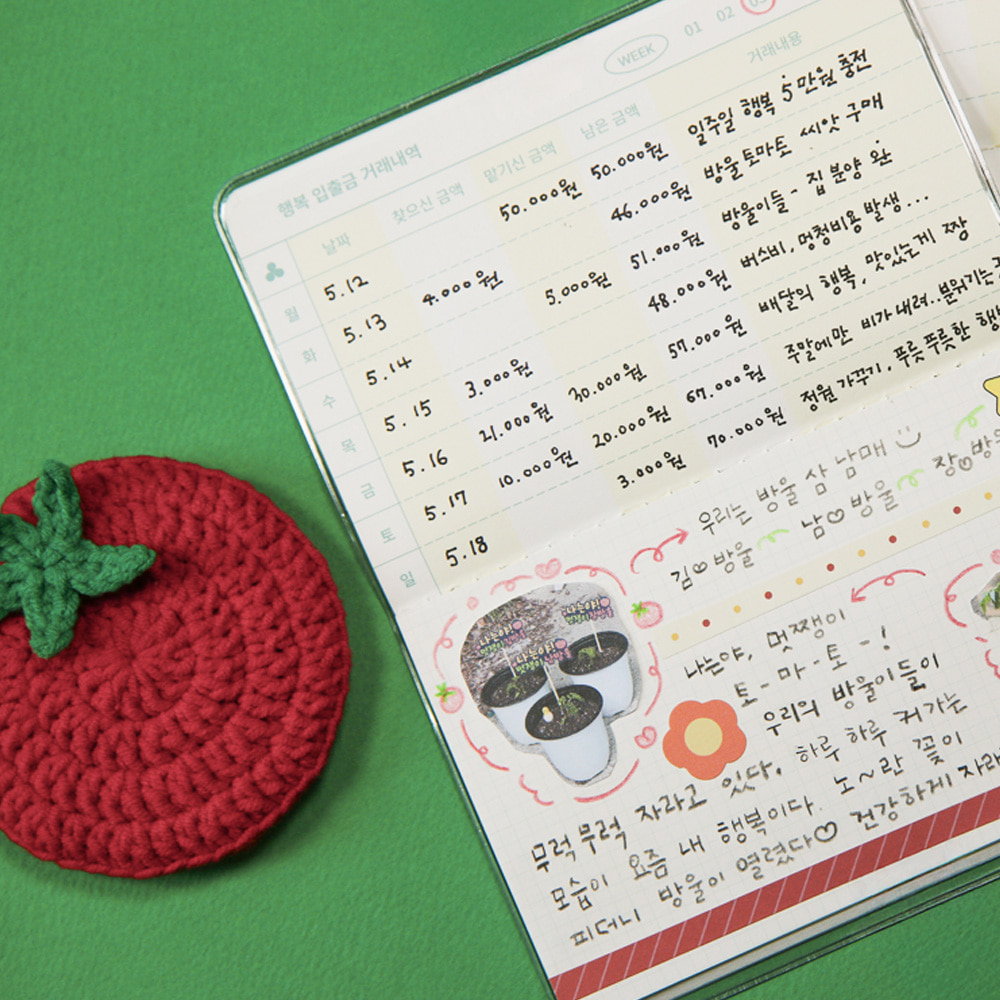 WEEK 01 02 03
행복 입출금 거래내역
날짜 찾으신 금액 맡기신 금액 남은 금액 거래내용
월 5.12 50.000원 50.000원 일주일 행복 5만원 충전
화 5.13 4.000원 46.000원 방울토마토 씨앗 구매
수 5.14 5.000원 51.000원 방울이들 - 집 분양 완
목 5.15 3.000원 48.000원 버스비, 멍청비용 발생...
금 5.16 21.000원 30.000원 57.000원 배달의 행복, 맛있는게 짱
토 5.17 10.000원 20.000원 67.000원 주말에만 비가 내려..분위기는
일 5.18 3.000원 70.000원 정원 가꾸기, 푸릇푸릇한
우리는 방울 삼 남매
김♡방울 남♡방울 장♡방
나는야!
멋쟁이
나는야!
나는야!
나는야, 멋쟁이
토-마-토-!
우리의 방울이들이
무럭무럭 자라고 있다. 하루 하루 커가는
모습이 요즘 내 행복이다. 노~란 꽃이
피더니 방울이 열렸다♡ 건강하게